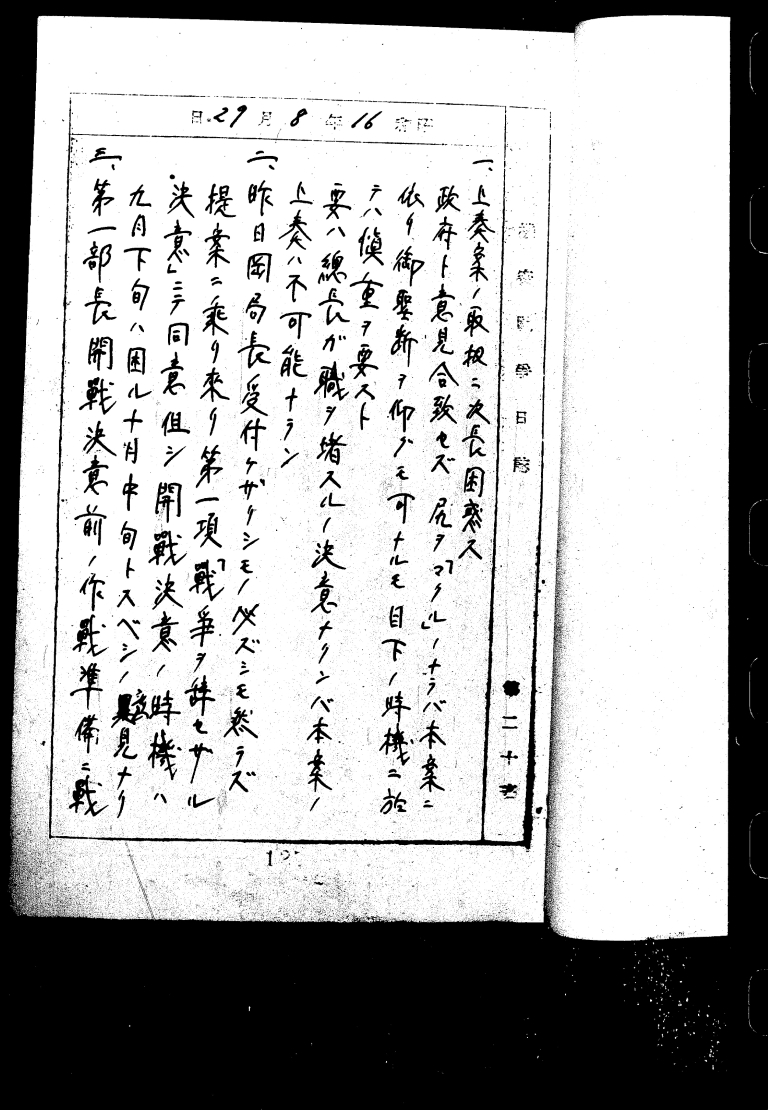 昭和16年8月29日
一、上奏案ノ取扱ニ次長困惑ス
政府ト意見合致セズ 尻ヲ「マクル」ノナラバ本案ニ
依リ御聖断ヲ仰グモ可ナルモ目下ノ時機ニ於
テハ慎重ヲ要スト
要ハ總長ガ職ヲ堵スルノ決意ナクンバ本案ノ
上奏ハ不可能ナラン
二、昨日岡局長ノ受付ケザリシモノ必ズシモ然ラズ
提案ニ乘リ來リ第一項「戰爭ヲ辞セザル
決意」ニテ同意 但シ開戰決意ノ時機ハ
九月下旬ハ困ル十月中旬トスベシノ意見ナリ
三、第一部長開戰決意前ノ作戰準備ニ戰
日誌
第二十